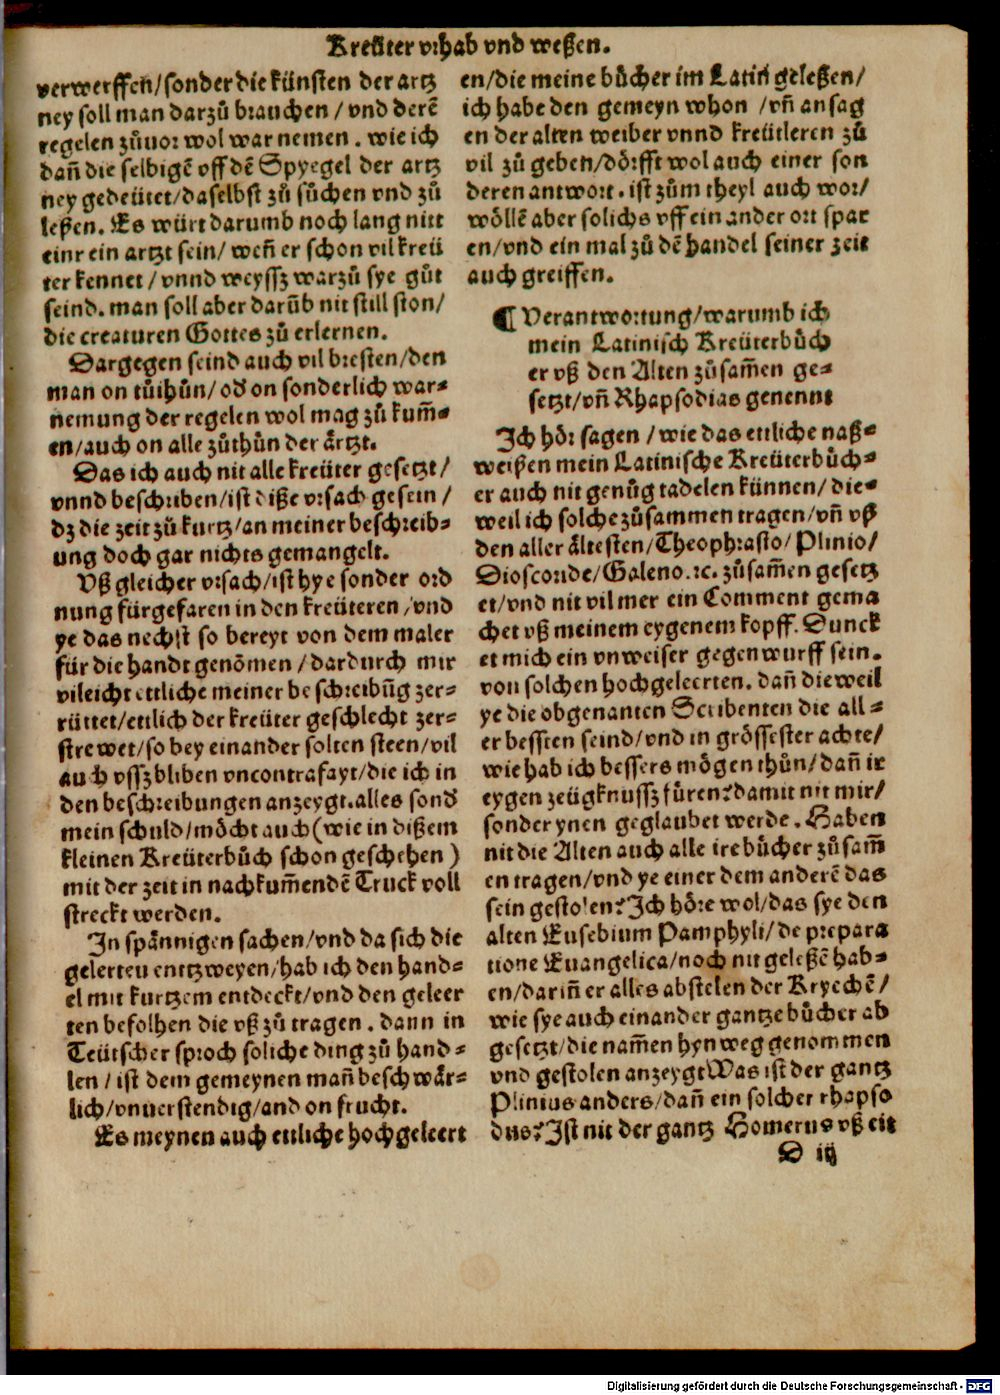 Kreüter vrhab vnd weßen.
verwerffen/sonder die künsten der artz
ney soll man darzů brauchen / vnd derē
regelen zůuor wol war nemen . wie ich
dañ die selbigē vff dē Spyegel der artz
ney gedeütet/daselbst zů sůchen vnd zů
leßen. Es würt darumb noch lang nitt
einr ein artzt sein/ weñ er schon vil kreü
ter kennet / vnnd weyssz warzů sye gůt
seind. man soll aber darūb nit still ston/
die creaturen Gottes zů erlernen.
Dargegen seind auch vil bresten/den
man on tůthůn/ od on sonderlich war-
nemung der regelen wol mag zů kum̄-
en/auch on alle zůthůn der ärtzt.
Das ich auch nit alle kreüter gesetzt/
vnnd beschriben/ist diße vrsach gesein /
dz die zeit zů kurtz/an meiner beschreib-
ung doch gar nichts gemangelt.
Vß gleicher vrsach/ist hye sonder ord
nung fürgefaren in den kreüteren /vnd
ye das nechst so bereyt von dem maler
für die handt genōmen / dardurch mir
vileicht ettliche meiner beschreibūg zer-
rüttet/ettlich der kreüter geschlecht zer-
strewet/so bey einander solten steen/vil
auch vssz bliben vncontrafayt/die ich in
den beschreibungen anzeygt.alles sond
mein schuld/möcht auch(wie in dißem
kleinen Kreüterbůch schon geschehen )
mit der zeit in nachkum̄endē Truck voll
streckt werden.
In spännigen sachen/vnd da sich die
gelerten entzweyen/hab ich den hand-
el mit kurtzem entdeckt/vnd den geleer
ten befolhen die vß zů tragen . dann in
Teütscher sproch soliche ding zů hand-
len / ist dem gemeynen mañ beschwär-
lich/vnuerstendig/and on frucht.
Es meynen auch ettliche hochgeleert
en/die meine bůcher im Latin geleßen/
ich habe den gemeyn whon /vñ ansag
en der alten weiber vnnd kreütleren zů
vil zů geben/dörfft wol auch einer son
deren antwort . ist zům theyl auch wor/
wöllē aber solichs vff ein ander ort spar
en/vnd ein mal zů dē handel seiner zeit
auch greiffen.
¶ Verantwortung/warumb ich
mein Latinisch Kreüterbůch
er vß den Alten zůsam̄en ge-
setzt/vñ Rhapsodias genennt
Ich hör sagen / wie das ettliche naß-
weißen mein Latinische Kreüterbůch-
er auch nit genůg tadelen künnen/ die-
weil ich solche zůsammen tragen/vñ vß
den aller ältesten/Theophrasto/ Plinio/
Dioscoride/Galeno.ꝛc. zůsam̄en gesetz
et/vnd nit vil mer ein Comment gema
chet vß meinem eygenem kopff. Dunck
et mich ein vnweiser gegenwurff sein.
von solchen hochgeleerten. dañ dieweil
ye die obgenanten Scribenten die all-
er bessten seind/vnd in grössester achte/
wie hab ich bessers mögen thůn/dañ ir
eygen zeügknussz füren?damit nit mir/
sonder ynen geglaubet werde . Haben
nit die Alten auch alle ire bücher zůsam̄
en tragen/vnd ye einer dem anderē das
sein gestolen?Ich höre wol/das sye den
alten Eusebium Pamphyli/de prepara
tione Euangelica/noch nit geleßē hab-
en/dariñ er alles abstelen der Kryechē/
wie sye auch einander gantze bücher ab
gesetzt/die nam̄en hynweg genommen
vnd gestolen anzeygt Was ist der gantz
Plinius anders/dañ ein solcher rhapso
dus?Ist nit der gantz Homerus vß eit
D iij
Digitalisierung gefördert durch die Deutsche Forschungsgemeinschaft - DFG